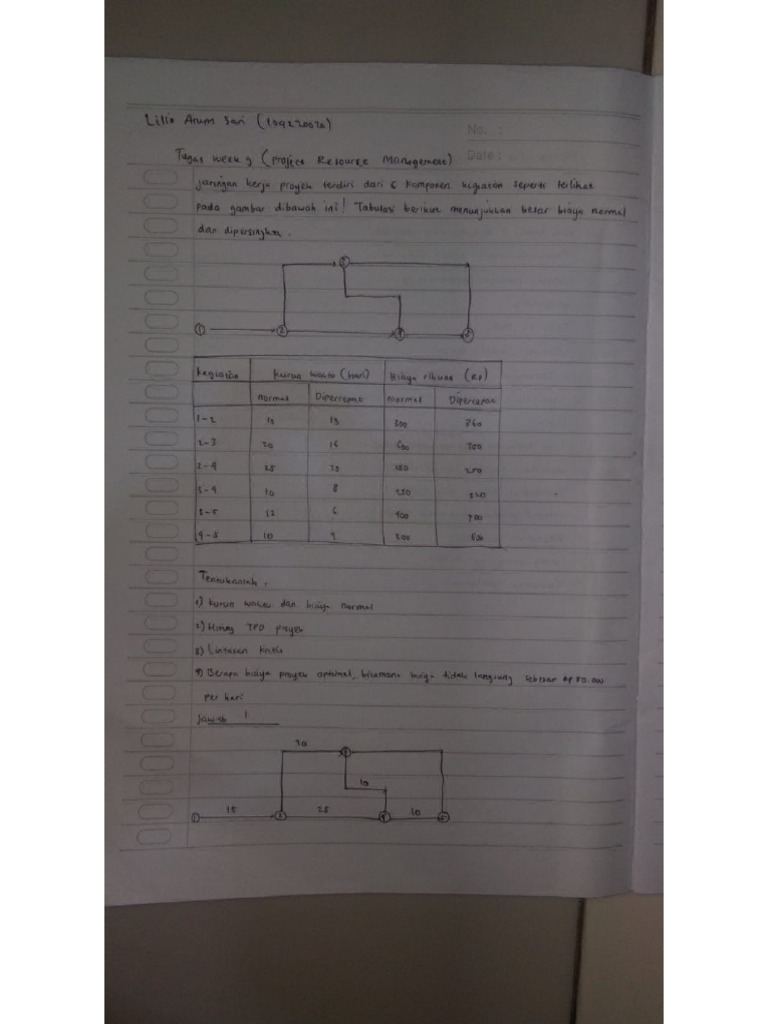 Lilis Arum Sari
No. :
Date :
Tugas week 9 (Project Resource Management)
Jaringan kerja proyek terdiri dari 6 komponen kegiatan seperti terlihat
pada gambar dibawah ini! Tabulasi berikut menunjukkan besar biaya normal
dan dipersingkat.
3
1 2 4 5
Kegiatan Kurun waktu (hari) Biaya ribuan (Rp)
Normal Dipercepat Normal Dipercepat
1-2 300 360
2-3 20 16 600 700
2-4 25
3-4 10 8 250
3-5 12 6 400 700
4-5 10 9 800
Tentukanlah :
1) Kurun waktu dan biaya normal
2) Hitung TPD proyek
3) Lintasan kritis
4) Berapa biaya proyek optimal, bilamana biaya tidak langsung sebesar Rp 50.000
per hari
Jawab !
20
3
10
15 25 10
1 2 4 5